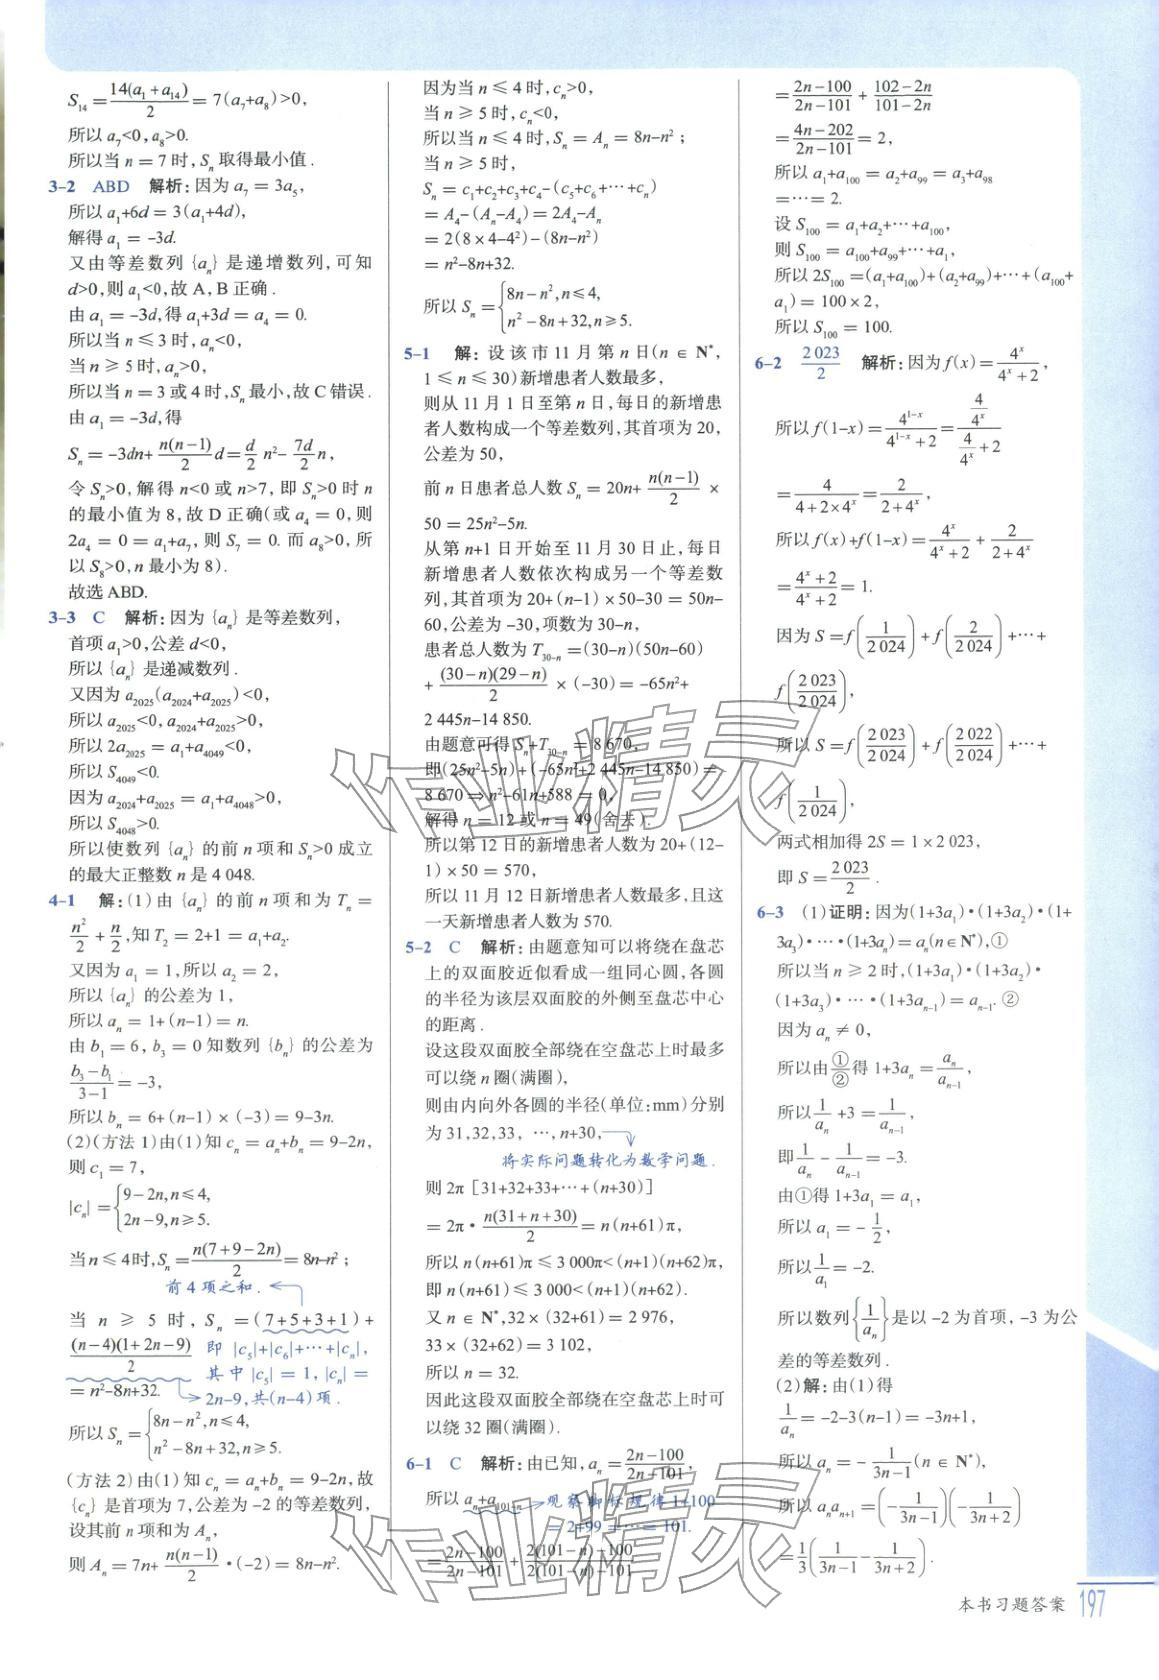 S₁₄ = 14(a₁+a₁₄)/2 = 7(a₇+a₈)>0,
所以 a₇<0, a₈>0.
所以当 n = 7 时, Sₙ 取得最小值.
3-2 ABD 解析:因为 a₇ = 3a₅,
所以 a₁+6d = 3(a₁+4d),
解得 a₁ = -3d.
又由等差数列 {aₙ} 是递增数列,可知
d>0,则 a₁<0,故 A, B 正确.
由 a₁ = -3d,得 a₁+3d = a₄ = 0.
所以当 n ≤ 3 时, aₙ<0,
当 n ≥ 5 时, aₙ>0,
所以当 n = 3 或 4 时, Sₙ 最小,故 C 错误.
由 a₁ = -3d,得
Sₙ = -3dn+ n(n-1)/2 d = d/2 n² - 7d/2 n,
令 Sₙ>0,解得 n<0 或 n>7,即 Sₙ>0 时 n
的最小值为 8,故 D 正确(或 a₄ = 0,则
2a₄ = 0 = a₁+a₇,则 S₇ = 0. 而 a₈>0,所
以 S₈>0, n 最小为 8).
故选 ABD.
3-3 C 解析:因为 {aₙ} 是等差数列,
首项 a₁>0,公差 d<0,
所以 {aₙ} 是递减数列.
又因为 a₂₀₂₅(a₂₀₂₄+a₂₀₂₅)<0,
所以 a₂₀₂₅<0, a₂₀₂₄+a₂₀₂₅>0,
所以 2a₂₀₂₅ = a₁+a₄₀₄₉<0,
所以 S₄₀₄₉<0.
因为 a₂₀₂₄+a₂₀₂₅ = a₁+a₄₀₄₈>0,
所以 S₄₀₄₈>0.
所以使数列 {aₙ} 的前 n 项和 Sₙ>0 成立
的最大正整数 n 是 4 048.
4-1 解:(1)由 {aₙ} 的前 n 项和为 Tₙ =
n²/2 + n/2,知 T₂ = 2+1 = a₁+a₂.
又因为 a₁ = 1,所以 a₂ = 2,
所以 {aₙ} 的公差为 1,
所以 aₙ = 1+(n-1) = n.
由 b₁ = 6, b₃ = 0 知数列 {bₙ} 的公差为
(b₃-b₁)/(3-1) = -3,
所以 bₙ = 6+(n-1)×(-3) = 9-3n.
(2)(方法 1)由(1)知 cₙ = aₙ+bₙ = 9-2n,
则 c₁ = 7,
|cₙ| = {9-2n, n≤4,
2n-9, n≥5.
当 n ≤ 4时, Sₙ = n(7+9-2n)/2 = 8n-n²;
前 4 项之和.
当 n ≥ 5 时, Sₙ = (7+5+3+1)+
(n-4)(1+2n-9)/2 即 |c₅|+|c₆|+⋯+|cₙ|,
其中 |c₅| = 1, |cₙ| =
= n²-8n+32. 2n-9,共(n-4)项.
所以 Sₙ = {8n-n², n≤4,
n²-8n+32, n≥5.
(方法 2)由(1)知 cₙ = aₙ+bₙ = 9-2n,故
{cₙ} 是首项为 7,公差为 -2 的等差数列,
设其前 n 项和为 Aₙ,
则 Aₙ = 7n+ n(n-1)/2 ·(-2) = 8n-n².
因为当 n ≤ 4 时, cₙ>0,
当 n ≥ 5 时, cₙ<0,
所以当 n ≤ 4 时, Sₙ = Aₙ = 8n-n²;
当 n ≥ 5 时,
Sₙ = c₁+c₂+c₃+c₄-(c₅+c₆+⋯+cₙ)
= A₄-(Aₙ-A₄) = 2A₄-Aₙ
= 2(8×4-4²)-(8n-n²)
= n²-8n+32.
所以 Sₙ = {8n-n², n≤4,
n²-8n+32, n≥5.
5-1 解:设该市 11 月第 n 日(n ∈ N*,
1 ≤ n ≤ 30)新增患者人数最多,
则从 11 月 1 日至第 n 日,每日的新增患
者人数构成一个等差数列,其首项为 20,
公差为 50,
前 n 日患者总人数 Sₙ = 20n+ n(n-1)/2 ×
50 = 25n²-5n.
从第 n+1 日开始至 11 月 30 日止,每日
新增患者人数依次构成另一个等差数
列,其首项为 20+(n-1)×50-30 = 50n-
60,公差为 -30,项数为 30-n,
患者总人数为 T₃₀₋ₙ = (30-n)(50n-60)
+ (30-n)(29-n)/2 ×(-30) = -65n²+
2 445n-14 850.
由题意可得 Sₙ+T₃₀₋ₙ = 8 670,
即(25n²-5n)+(-65n²+2 445n-14 850) =
8 670 ⇒ n²-61n+588 = 0,
解得 n = 12 或 n = 49(舍去).
所以第 12 日的新增患者人数为 20+(12-
1)×50 = 570,
所以 11 月 12 日新增患者人数最多,且这
一天新增患者人数为 570.
5-2 C 解析:由题意知可以将绕在盘芯
上的双面胶近似看成一组同心圆,各圆
的半径为该层双面胶的外侧至盘芯中心
的距离.
设这段双面胶全部绕在空盘芯上时最多
可以绕 n 圈(满圈),
则由内向外各圆的半径(单位:mm)分别
为 31,32,33, ⋯, n+30,
将实际问题转化为数学问题.
则 2π[31+32+33+⋯+(n+30)]
= 2π· n(31+n+30)/2 = n(n+61)π,
所以 n(n+61)π ≤ 3 000π<(n+1)(n+62)π,
即 n(n+61) ≤ 3 000<(n+1)(n+62).
又 n ∈ N*, 32×(32+61) = 2 976,
33×(33+62) = 3 102,
所以 n = 32.
因此这段双面胶全部绕在空盘芯上时可
以绕 32 圈(满圈).
6-1 C 解析:由已知, aₙ = (2n-100)/(2n-101),
所以 aₙ+a₁₀₁₋ₙ 观察脚标规律 1+100
= 2+99 = ⋯ = 101.
= (2n-100)/(2n-101) + (2(101-n)-100)/(2(101-n)-101)
= (2n-100)/(2n-101) + (102-2n)/(101-2n)
= (4n-202)/(2n-101) = 2,
所以 a₁+a₁₀₀ = a₂+a₉₉ = a₃+a₉₈
=⋯= 2.
设 S₁₀₀ = a₁+a₂+⋯+a₁₀₀,
则 S₁₀₀ = a₁₀₀+a₉₉+⋯+a₁,
所以 2S₁₀₀ = (a₁+a₁₀₀)+(a₂+a₉₉)+⋯+(a₁₀₀+
a₁) = 100×2,
所以 S₁₀₀ = 100.
6-2 2 023/2 解析:因为 f(x) = 4ˣ/(4ˣ+2),
所以 f(1-x) = 4¹⁻ˣ/(4¹⁻ˣ+2) = (4/4ˣ)/(4/4ˣ+2)
= 4/(4+2×4ˣ) = 2/(2+4ˣ),
所以 f(x)+f(1-x) = 4ˣ/(4ˣ+2) + 2/(2+4ˣ)
= (4ˣ+2)/(4ˣ+2) = 1.
因为 S = f(1/2 024)+f(2/2 024)+⋯+
f(2 023/2 024),
所以 S = f(2 023/2 024)+f(2 022/2 024)+⋯+
f(1/2 024),
两式相加得 2S = 1×2 023,
即 S = 2 023/2.
6-3 (1)证明:因为(1+3a₁)·(1+3a₂)·(1+
3a₃)·⋯·(1+3aₙ) = aₙ(n∈N*),①
所以当 n ≥ 2 时,(1+3a₁)·(1+3a₂)·
(1+3a₃)·⋯·(1+3aₙ₋₁) = aₙ₋₁. ②
因为 aₙ ≠ 0,
所以由①/②得 1+3aₙ = aₙ/aₙ₋₁,
所以 1/aₙ +3 = 1/aₙ₋₁,
即 1/aₙ - 1/aₙ₋₁ = -3.
由①得 1+3a₁ = a₁,
所以 a₁ = -1/2,
所以 1/a₁ = -2.
所以数列{1/aₙ}是以 -2 为首项, -3 为公
差的等差数列.
(2)解:由(1)得
1/aₙ = -2-3(n-1) = -3n+1,
所以 aₙ = -1/(3n-1)(n ∈ N*),
所以 aₙaₙ₊₁ = (-1/(3n-1))(-1/(3n+2))
= 1/3(1/(3n-1) - 1/(3n+2)).
本书习题答案 197
作业精灵
作业精灵